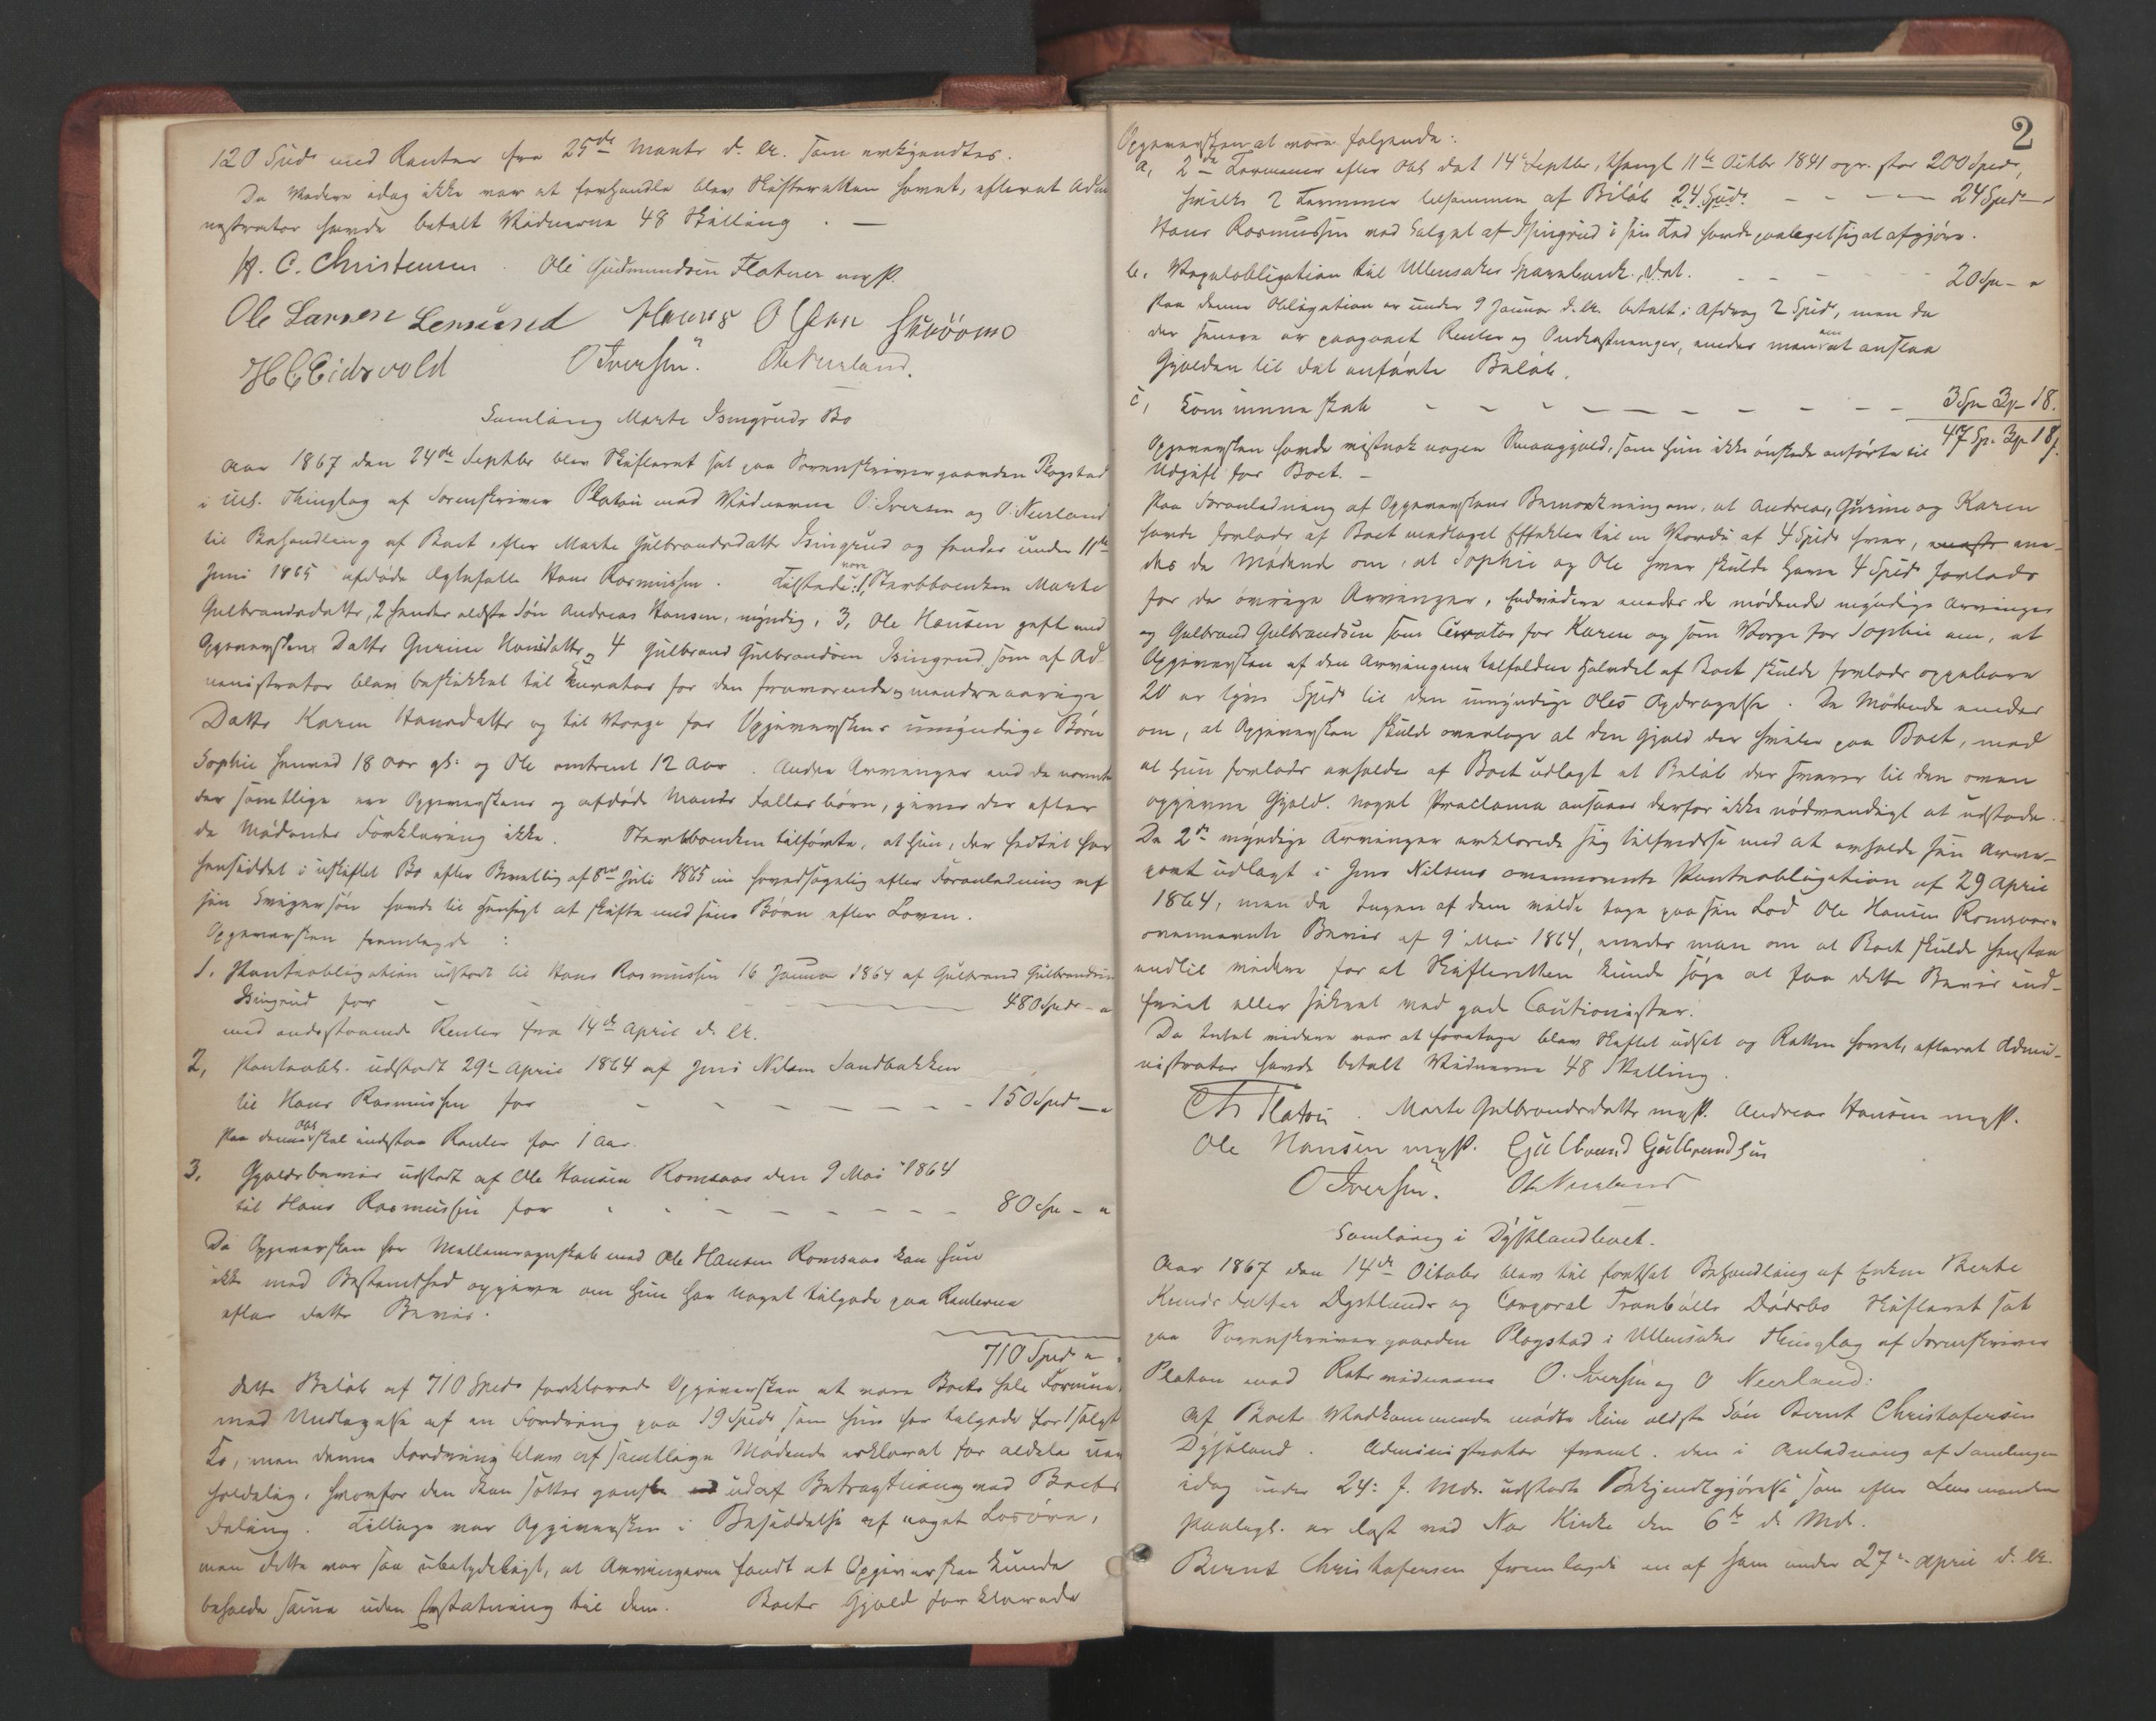 120 Spd. med Renter fra 25de Marts d. A. som erkjendtes.
Da Videre idag ikke var at forhandle blev Skifteretten hævet, efterat Admi
nistrator havde betalt Vidnerne 48 Skilling . —
H. C. Christensen . Ole Gudmundsen Flatner mpP.
Ole Larsen Hans Olsen
H C Eidsvold O Iversen. Ole Neerland.
Samling Marte Isingruds Bo
Aar 1867 den 24de Septbr blev Skifteret sat paa Sorenskrivergaarden Rogstad
i Ull. Thinglag af Sorenskriver Platou med Vidnerne O. Iversen og O. Neerland
til Behandling af Boet efter Marte Gulbrandsdatter Isingrud og hendes under 11te
Juni 1865 afdøde Ægtefælle Hans Rasmussen . Tilstede vare: 1, Sterbboenken Marte
Gulbrandsdatter, 2 hendes ældste Søn Andreas Hansen, myndig, 3, Ole Hansen gift med
Opgiverskens Datter Gurine Hansdatter og 4 Gulbrand Gulbrandsen Isingrud, som af Ad
ministrator blev beskikket til Kurator for den fraværende mindreaarige
Datter Karen Hansdatter og til Værge for Opgiverskens umyndige Børn
Sophie henved 18 Aar gl: og Ole omtrent 12 Aar . Andre Arvinger end de nævnte
der samtlige ere Opgiverskens og afdøde Mands Fællesbørn, gives der efter
de Mødendes Forklaring ikke . Sterbboenken tilførte, at hun, der hidtil har
hensiddet i uskiftet Bo efter Bevilling af 8de Juli 1865 nu hovedsagelig efter Foranledning af
sin Svigersøn havde til Hensigt at skifte med sine Børn efter Loven .
Opgiversken fremlagde :
1. Panteobligation udstedt til Hans Rasmussen 16 Januar 1864 af Gulbrand Gulbrandsen
Isingrud for - - - 480 Spdr - "
med indestaaende Renter fra 14de April d. A.
2, Panteobl. udstedt 29de April 1864 af Jens Nilsen Sandbakken
til Hans Rasmussen for - - - - 150 Spd - "
Paa denne Obl. skal indestaa Renter for 1 Aar.
3, Gjeldsbevis udstedt af Ole Hansen Romsaas den 9 Mai 1864
til Hans Rasmussen for - - - - 80 Sp - "
Da Opgiversken har Mellemregnskab med Ole Hansen Romsaas kan hun
ikke med Bestemthed opgive om hun har noget tilgode paa Renterne
efter dette Bevis .
710 Spd - "
Dette Beløb af 710 Spd. forklarede Opgiversken at være Boets hele Formue,
med Undtagelse af en Fordring paa 19 Spd, som hun har tilgode for 1 solgt
Ko, men denne Fordring blev af samtlige Mødende erklæret for aldeles uer
holdelig, hvorfor den kan sættes ganske ud af Betragtning ved Boets
Deling . Tillige var Opgiversken i Besiddelse af noget Løsøre,
men dette var saa ubetydeligt, at Arvingerne fandt at Opgiversken kunde
beholde samme uden Erstatning til dem . Boets Gjæld forklarede
2
Opgiversken at være følgende :
a, 2de Terminer efter Obl. dat 14de Septbr, thingl 11te Octbr 1841 opr. stor 200 Spd,
hvilke 2 Terminer tilsammen af Beløb 24 Spd. - - - 24 Spd - "
Hans Rasmussen ved Salget af Isingrud i sin Tid havde paalagt sig at afgjøre .
b, Vexelobligation til Ullensakers Sparebank, dat. - - - 20 Sp - "
Paa denne Obligation er under 9 Januar d. A. betalt i Afdrag 2 Spd, men da
der senere er paagaaet Renter og Omkostninger, enedes man om at ansætte
Gjælden til det anførte Beløb .
c, Kommuneskat - - - - - - - - 3 Sp 3 - 18.
47 Sp. 3 - 18 ß.
Opgiversken havde vistnok nogen Smaagjæld, som hun ikke ønskede anført til
Udgift for Boet . -
Paa Foranledning af Opgiverskens Bemærkning om, at Andreas, Gurine og Karen
havde forlods af Boet modtaget Effekter til en Værdi af 4 Spd hver, ene-
des de Mødende om, at Sophie og Ole hver skulde have 4 Spd forlods
for de øvrige Arvinger, Endvidere enedes de mødende myndige Arvinger
og Gulbrand Gulbrandsen som Curator for Karen og som Værge for Sophie om, at
Opgiversken af den Arvingerne tilfaldne Halvdel af Boet skulde forlods oppebære
20 er tyve Spd til den umyndige Oles Opdragelse . De Mødende enedes
om, at Opgiversken skulde overtage al den Gjæld der hviler paa Boet, mod
at hun forlods erholder af Boet udlagt et Beløb der svarer til den oven
opgivne Gjæld . Noget Proclama ansaaes derfor ikke nødvendigt at udstede .
De 2de myndige Arvinger erklærede sig tilfredse med at erholde sin Arve-
part udlagt i Jens Nilsens ovennævnte Panteobligation af 29 April
1864, men da Ingen af dem vilde tage paa sin Lod Ole Hansen Romsaas
ovennævnte Bevis af 9 Mai 1864, enedes man om at Boet skulde henstaa
indtil videre for at Skifteretten kunde søge at faa dette Bevis ind-
friet eller sikret ved gode Cautionister .
Da Intet videre var at foretage blev Skiftet udsat og Retten hævet, efterat Admi-
nistrator havde betalt Vidnerne 48 Skilling .
Ch Platou . Marte Gulbrandsdatter mpP. Andreas Hansen mpP.
Ole Hansen mpP. Gulbrand Gulbrandsen
O Iversen . Ole Neerland
Samling i Dystlandboet .
Aar 1867 den 14de October blev til fortsat Behandling af Enken Berthe
Knudsdatter Dystlands og Corporal Tranbølls Dødsbo Skifteret sat
paa Sorenskrivergaarden Rogstad i Ullensaker Thinglag af Sorenskriver
Platou med Retsvidnerne O. Iversen og O Neerland:
Af Boets Vedkommende mødte kun ældste Søn Bernt Christofersen
Dystland . Administrator freml. den i Anledning af Samlingen
idag under 24: f. Mdr. udstedte Bekjendtgjørelse som efter Lensmandens
Paategn. er læst ved Kirke den 6te ds Md.
Bernt Christofersen fremlagde en af ham under 27de April d. A.